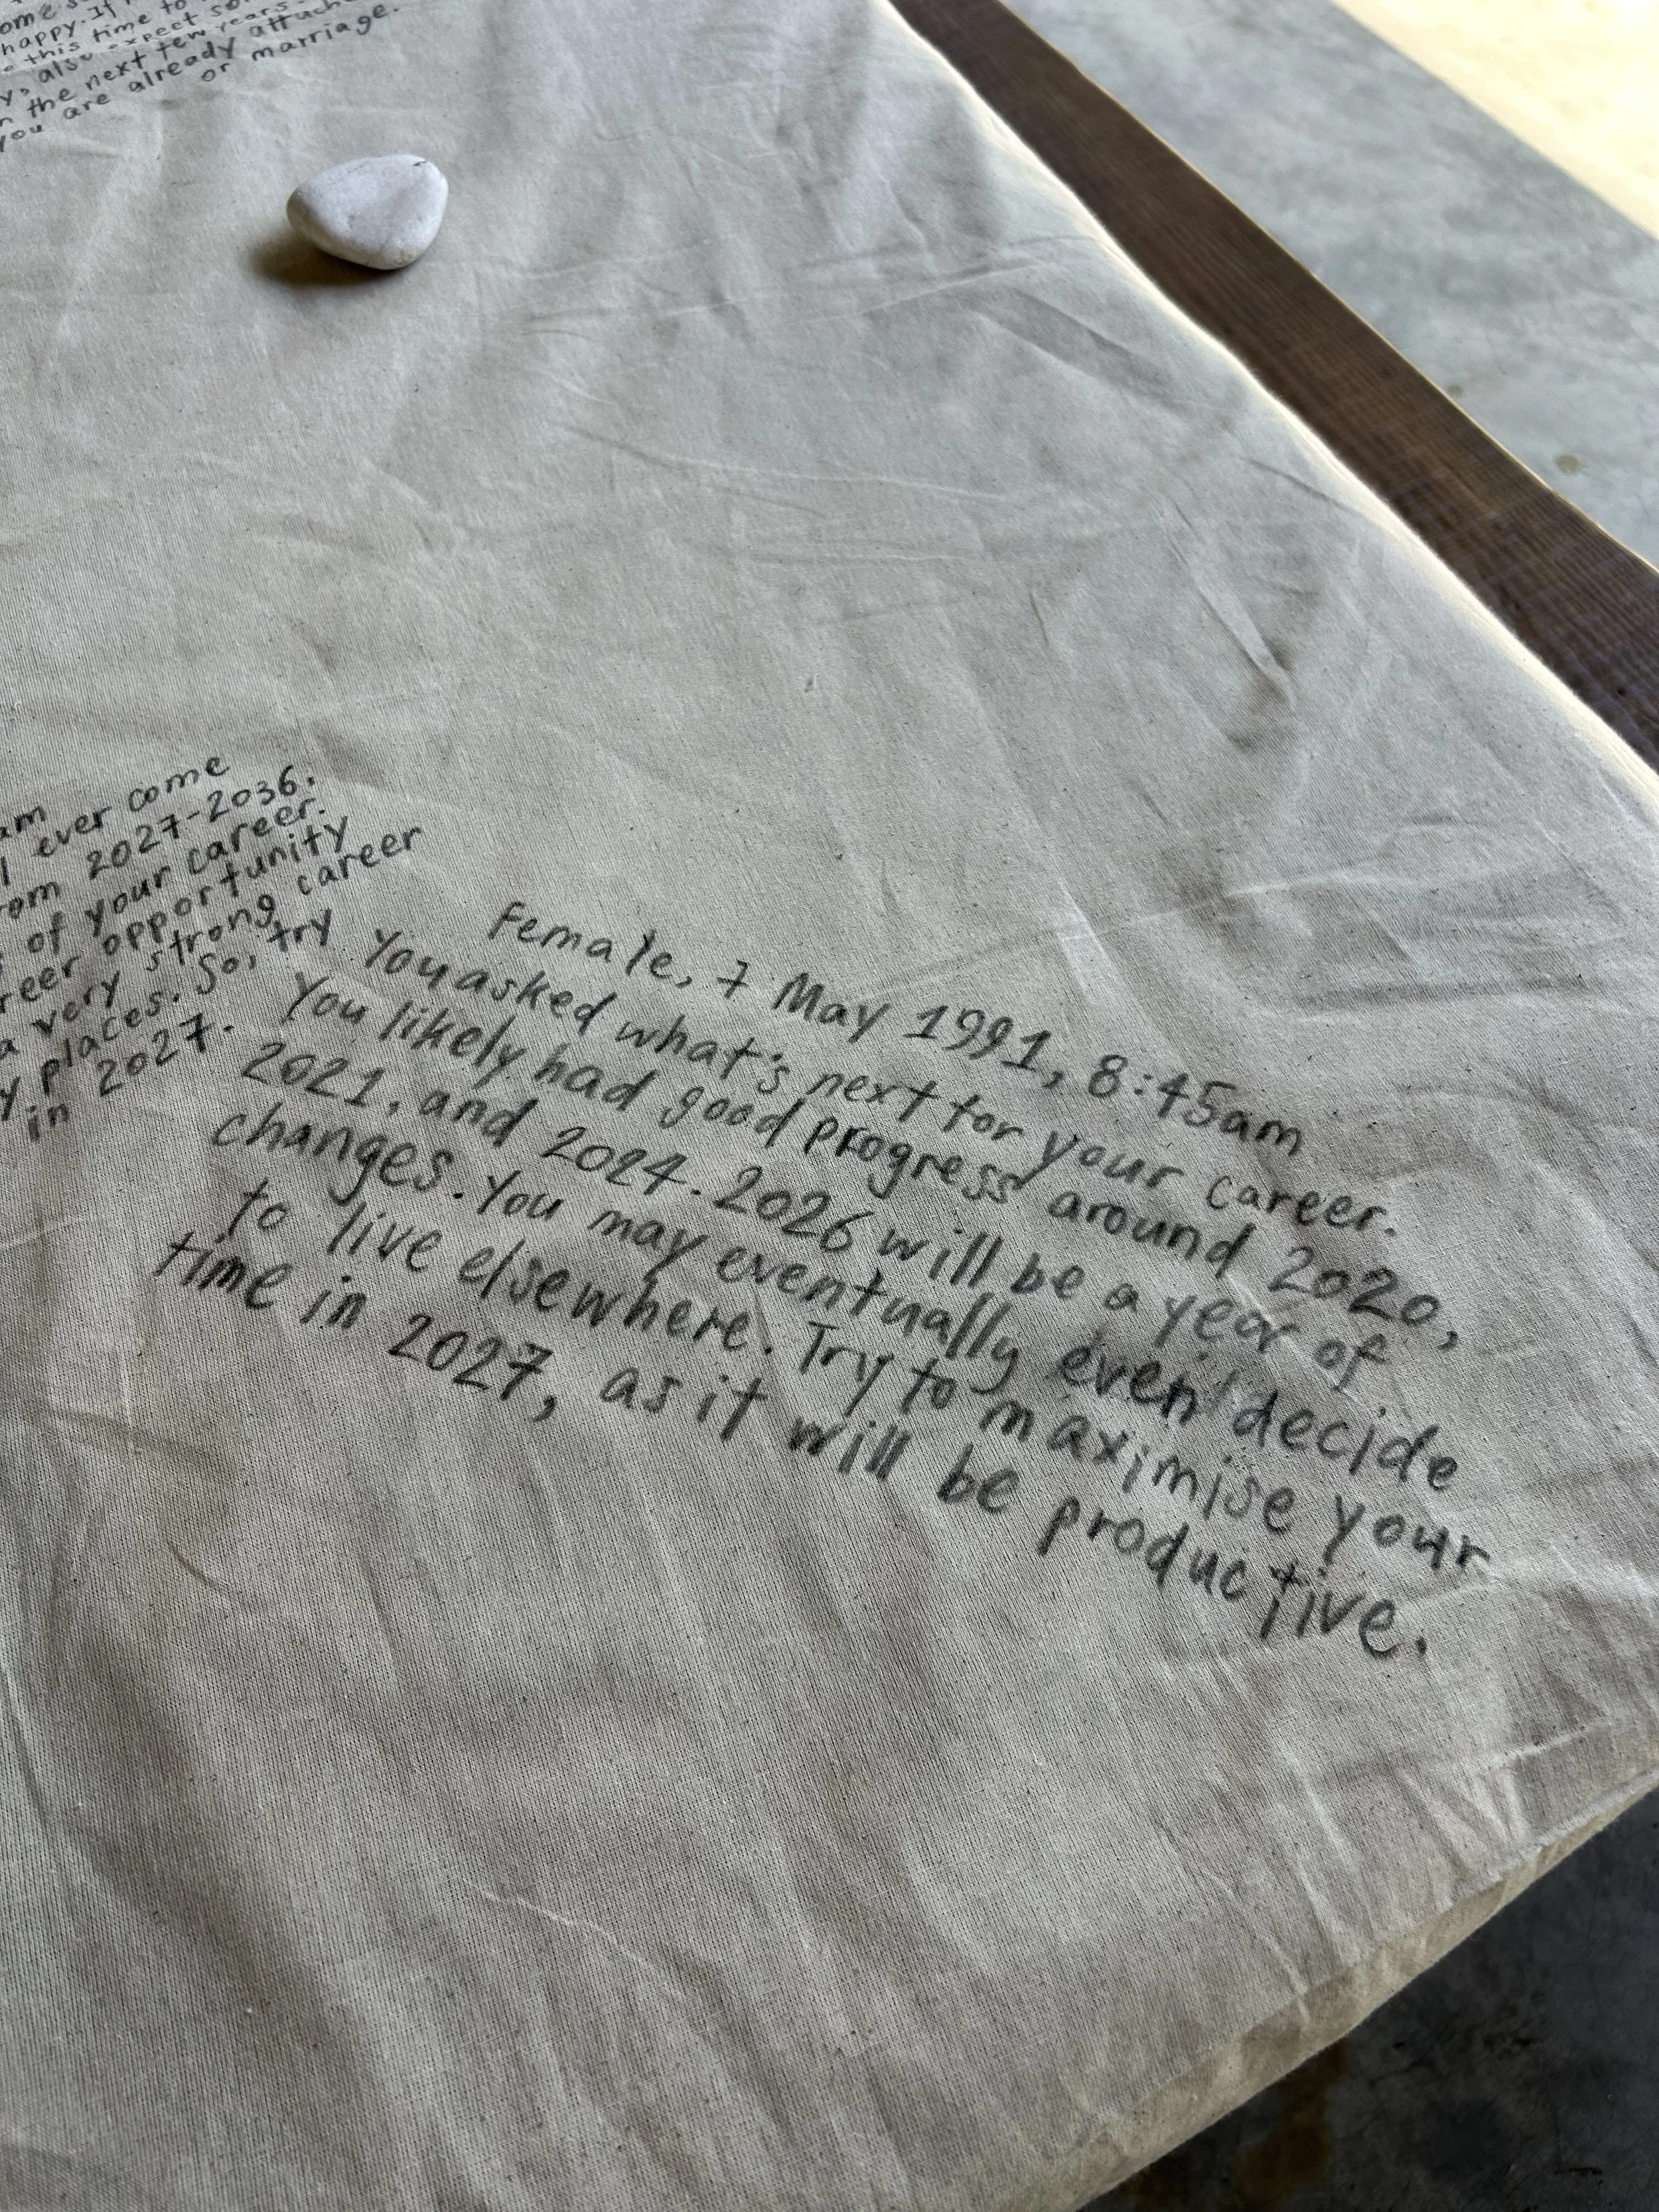 happy. If
this time to
also expect
n the next few years.
you are already
or marriage.
am
ever come
rom 2027-2036.
of your career.
reer opportunity
a very strong career
y places. So, try
in 2027.
Female, 7 May 1991, 8:45am
You asked what's next for your career.
You likely had good progress around 2020,
2021, and 2024. 2026 will be a year of
changes. You may eventually even decide
to live elsewhere. Try to maximise your
time in 2027, as it will be productive.